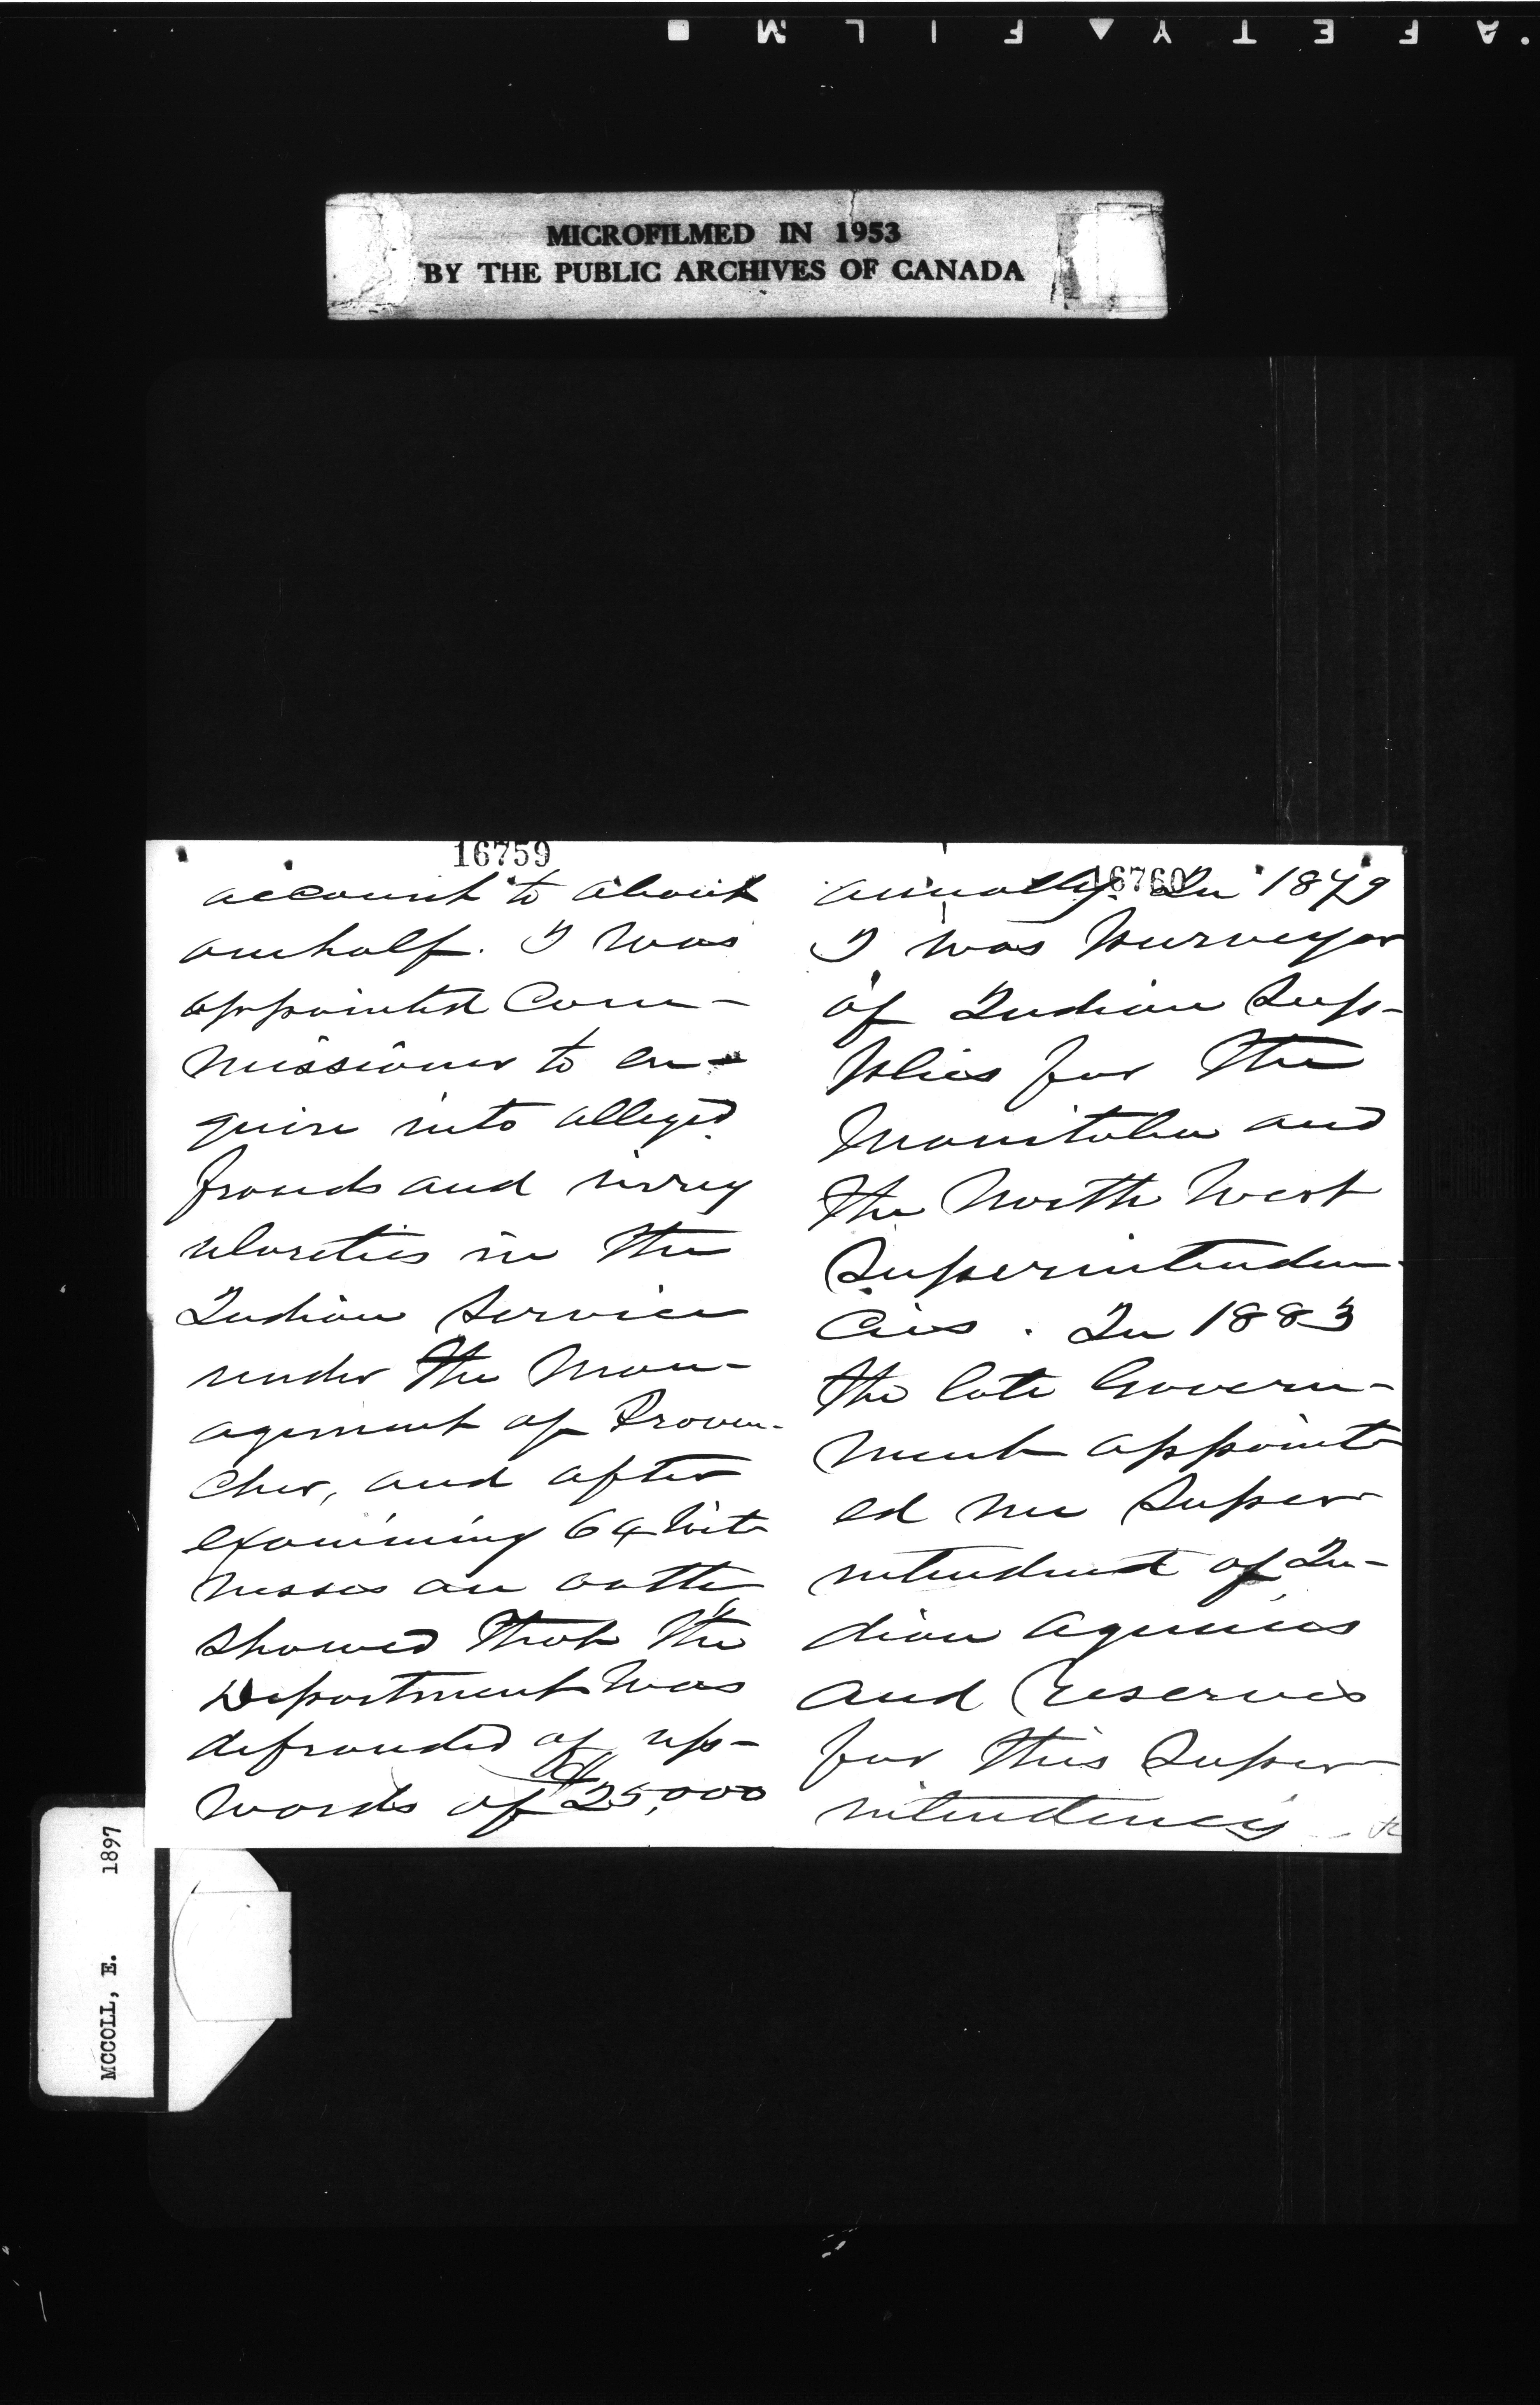 SAFETY FILM
MICROFILMED IN 1953
BY THE PUBLIC ARCHIVES OF CANADA
16759
account to about
onehalf. I was
appointed Com-
missioner to en-
quire into alleged
frauds and irreg
ularities in the
Indian Service
under the Man-
agement of Proven-
cher, and after
examining 64 wit
nesses on oath
showed that the
Department was
defrauded of up-
wards of $25,000
16760
annually. In 1879
I was purveyor
of Indian Sup-
plies for the
Manitoba and
the North West
Superintenden
cies. In 1883
the late Govern-
ment appoint
ed me Super
intendent of In-
dian Agencies
and Reserves
for this Super
intendency
MCCOLL, E. 1897